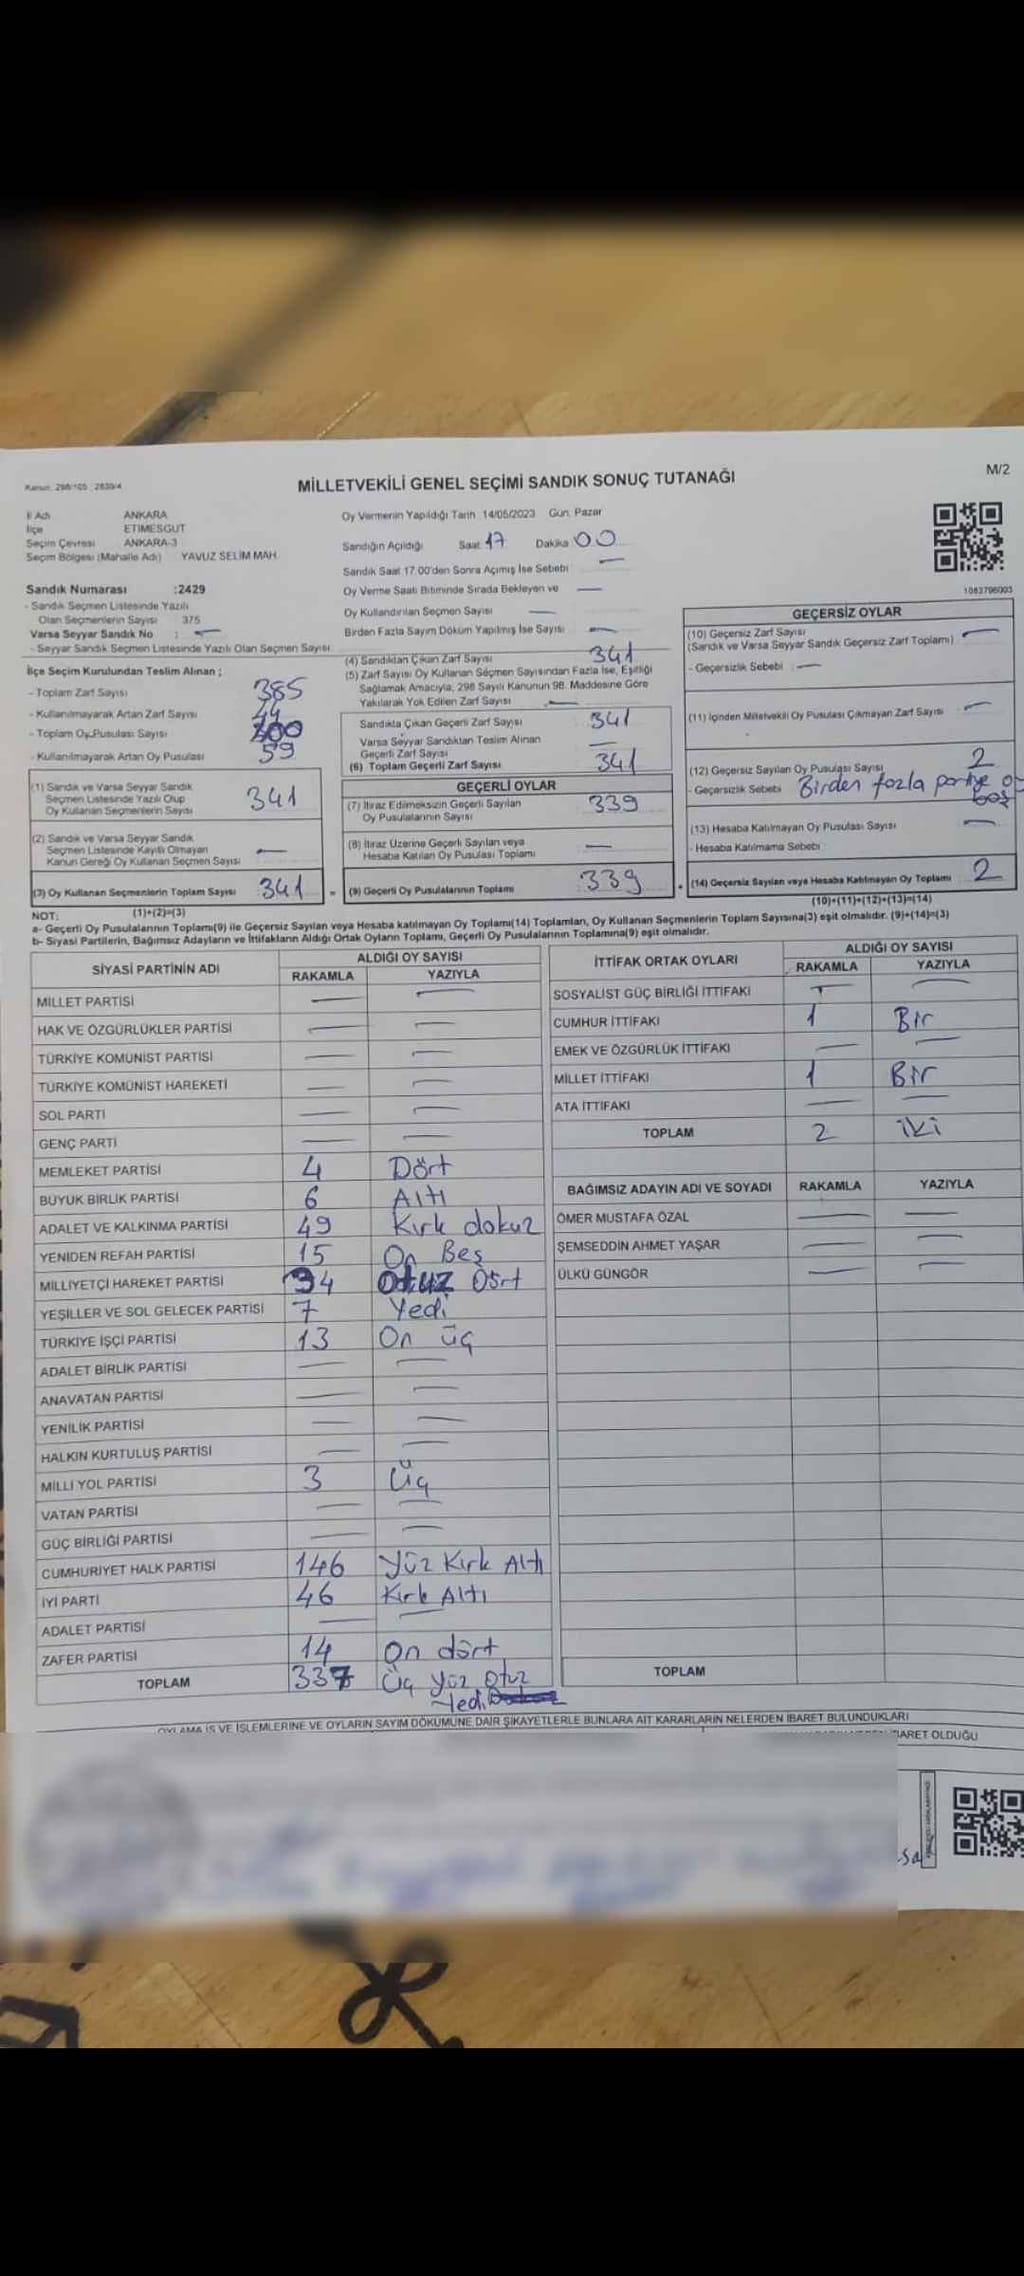 Kanun: 298/105 ; 2839/4
M/2
MİLLETVEKİLİ GENEL SEÇİMİ SANDIK SONUÇ TUTANAĞI
İl Adı ANKARA
İlçe ETİMESGUT
Seçim Çevresi ANKARA-3
Seçim Bölgesi (Mahalle Adı) YAVUZ SELİM MAH.
Sandık Numarası :2429
- Sandık Seçmen Listesinde Yazılı
Olan Seçmenlerin Sayısı 375
Varsa Seyyar Sandık No : —
- Seyyar Sandık Seçmen Listesinde Yazılı Olan Seçmen Sayısı
İlçe Seçim Kurulundan Teslim Alınan ;
- Toplam Zarf Sayısı 385
- Kullanılmayarak Artan Zarf Sayısı 44
- Toplam Oy Pusulası Sayısı
- Kullanılmayarak Artan Oy Pusulası 59
(1) Sandık ve Varsa Seyyar Sandık
Seçmen Listesinde Yazılı Olup
Oy Kullanan Seçmenlerin Sayısı 341
(2) Sandık ve Varsa Seyyar Sandık
Seçmen Listesinde Kayıtlı Olmayan
Kanun Gereği Oy Kullanan Seçmen Sayısı —
(3) Oy Kullanan Seçmenlerin Toplam Sayısı 341
(1)+(2)=(3)
Oy Vermenin Yapıldığı Tarih 14/05/2023 Gün: Pazar
Sandığın Açıldığı Saat 17 Dakika 00
Sandık Saat 17.00'den Sonra Açımış İse Sebebi —
Oy Verme Saati Bitiminde Sırada Bekleyen ve —
Oy Kullandırılan Seçmen Sayısı —
Birden Fazla Sayım Döküm Yapılmış İse Sayısı —
(4) Sandıktan Çıkan Zarf Sayısı 341
(5) Zarf Sayısı Oy Kullanan Seçmen Sayısından Fazla İse, Eşitliği
Sağlamak Amacıyla, 298 Sayılı Kanunun 98. Maddesine Göre
Yakılarak Yok Edilen Zarf Sayısı —
Sandıkta Çıkan Geçerli Zarf Sayısı 341
Varsa Seyyar Sandıktan Teslim Alınan
Geçerli Zarf Sayısı —
(6) Toplam Geçerli Zarf Sayısı 341
GEÇERLİ OYLAR
(7) İtiraz Edilmeksizin Geçerli Sayılan
Oy Pusulalarının Sayısı 339
(8) İtiraz Üzerine Geçerli Sayılan veya
Hesaba Katılan Oy Pusulası Toplamı —
= (9) Geçerli Oy Pusulalarının Toplamı 339
1083796003
GEÇERSİZ OYLAR
(10) Geçersiz Zarf Sayısı —
(Sandık ve Varsa Seyyar Sandık Geçersiz Zarf Toplamı)
- Geçersizlik Sebebi : —
(11) İçinden Milletvekili Oy Pusulası Çıkmayan Zarf Sayısı —
(12) Geçersiz Sayılan Oy Pusulası Sayısı 2
- Geçersizlik Sebebi Birden fazla partiye
boş
(13) Hesaba Katılmayan Oy Pusulası Sayısı —
- Hesaba Katılmama Sebebi :
+ (14) Geçersiz Sayılan veya Hesaba Katılmayan Oy Toplamı 2
(10)+(11)+(12)+(13)=(14)
NOT:
a- Geçerli Oy Pusulalarının Toplamı(9) ile Geçersiz Sayılan veya Hesaba katılmayan Oy Toplamı(14) Toplamları, Oy Kullanan Seçmenlerin Toplam Sayısına(3) eşit olmalıdır. (9)+(14)=(3)
b- Siyasi Partilerin, Bağımsız Adayların ve İttifakların Aldığı Ortak Oyların Toplamı, Geçerli Oy Pusulalarının Toplamına(9) eşit olmalıdır.
SİYASİ PARTİNİN ADI ALDIĞI OY SAYISI
RAKAMLA YAZIYLA
MİLLET PARTİSİ — —
HAK VE ÖZGÜRLÜKLER PARTİSİ — —
TÜRKİYE KOMÜNİST PARTİSİ — —
TÜRKİYE KOMÜNİST HAREKETİ — —
SOL PARTİ — —
GENÇ PARTİ — —
MEMLEKET PARTİSİ 4 Dört
BÜYÜK BİRLİK PARTİSİ 6 Altı
ADALET VE KALKINMA PARTİSİ 49 Kırk dokuz
YENİDEN REFAH PARTİSİ 15 On Beş
MİLLİYETÇİ HAREKET PARTİSİ 34 Otuz Dört
YEŞİLLER VE SOL GELECEK PARTİSİ 7 Yedi
TÜRKİYE İŞÇİ PARTİSİ 13 On üç
ADALET BİRLİK PARTİSİ — —
ANAVATAN PARTİSİ — —
YENİLİK PARTİSİ — —
HALKIN KURTULUŞ PARTİSİ — —
MİLLİ YOL PARTİSİ 3 Üç
VATAN PARTİSİ — —
GÜÇ BİRLİĞİ PARTİSİ — —
CUMHURİYET HALK PARTİSİ 146 Yüz Kırk Altı
İYİ PARTİ 46 Kırk Altı
ADALET PARTİSİ — —
ZAFER PARTİSİ 14 On dört
TOPLAM 337 Üç Yüz Otuz
Yedi
İTTİFAK ORTAK OYLARI ALDIĞI OY SAYISI
RAKAMLA YAZIYLA
SOSYALİST GÜÇ BİRLİĞİ İTTİFAKI — —
CUMHUR İTTİFAKI 1 Bir
EMEK VE ÖZGÜRLÜK İTTİFAKI — —
MİLLET İTTİFAKI 1 Bir
ATA İTTİFAKI — —
TOPLAM 2 iki
BAĞIMSIZ ADAYIN ADI VE SOYADI RAKAMLA YAZIYLA
ÖMER MUSTAFA ÖZAL — —
ŞEMSEDDİN AHMET YAŞAR — —
ÜLKÜ GÜNGÖR — —
TOPLAM
OYLAMA İŞ VE İŞLEMLERİNE VE OYLARIN SAYIM DÖKÜMÜNE DAİR ŞİKAYETLERLE BUNLARA AİT KARARLARIN NELERDEN İBARET BULUNDUKLARI
OLDUĞU